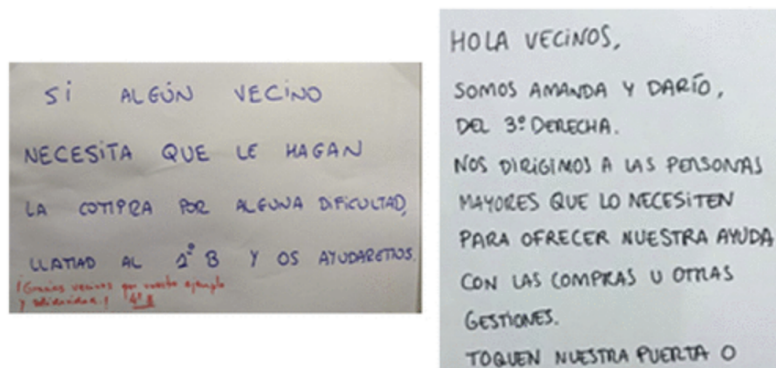 SI ALGÚN VECINO
NECESITA QUE LE HAGAN
LA COMPRA POR ALGUNA DIFICULTAD,
LLAMAD AL 1º B Y OS AYUDAREMOS.
¡Gracias vecinos por vuestro ejemplo
y solidaridad! 4º B
HOLA VECINOS,
SOMOS AMANDA Y DARÍO,
DEL 3º DERECHA.
NOS DIRIGIMOS A LAS PERSONAS
MAYORES QUE LO NECESITEN
PARA OFRECER NUESTRA AYUDA
CON LAS COMPRAS U OTRAS
GESTIONES.
TOQUEN NUESTRA PUERTA O